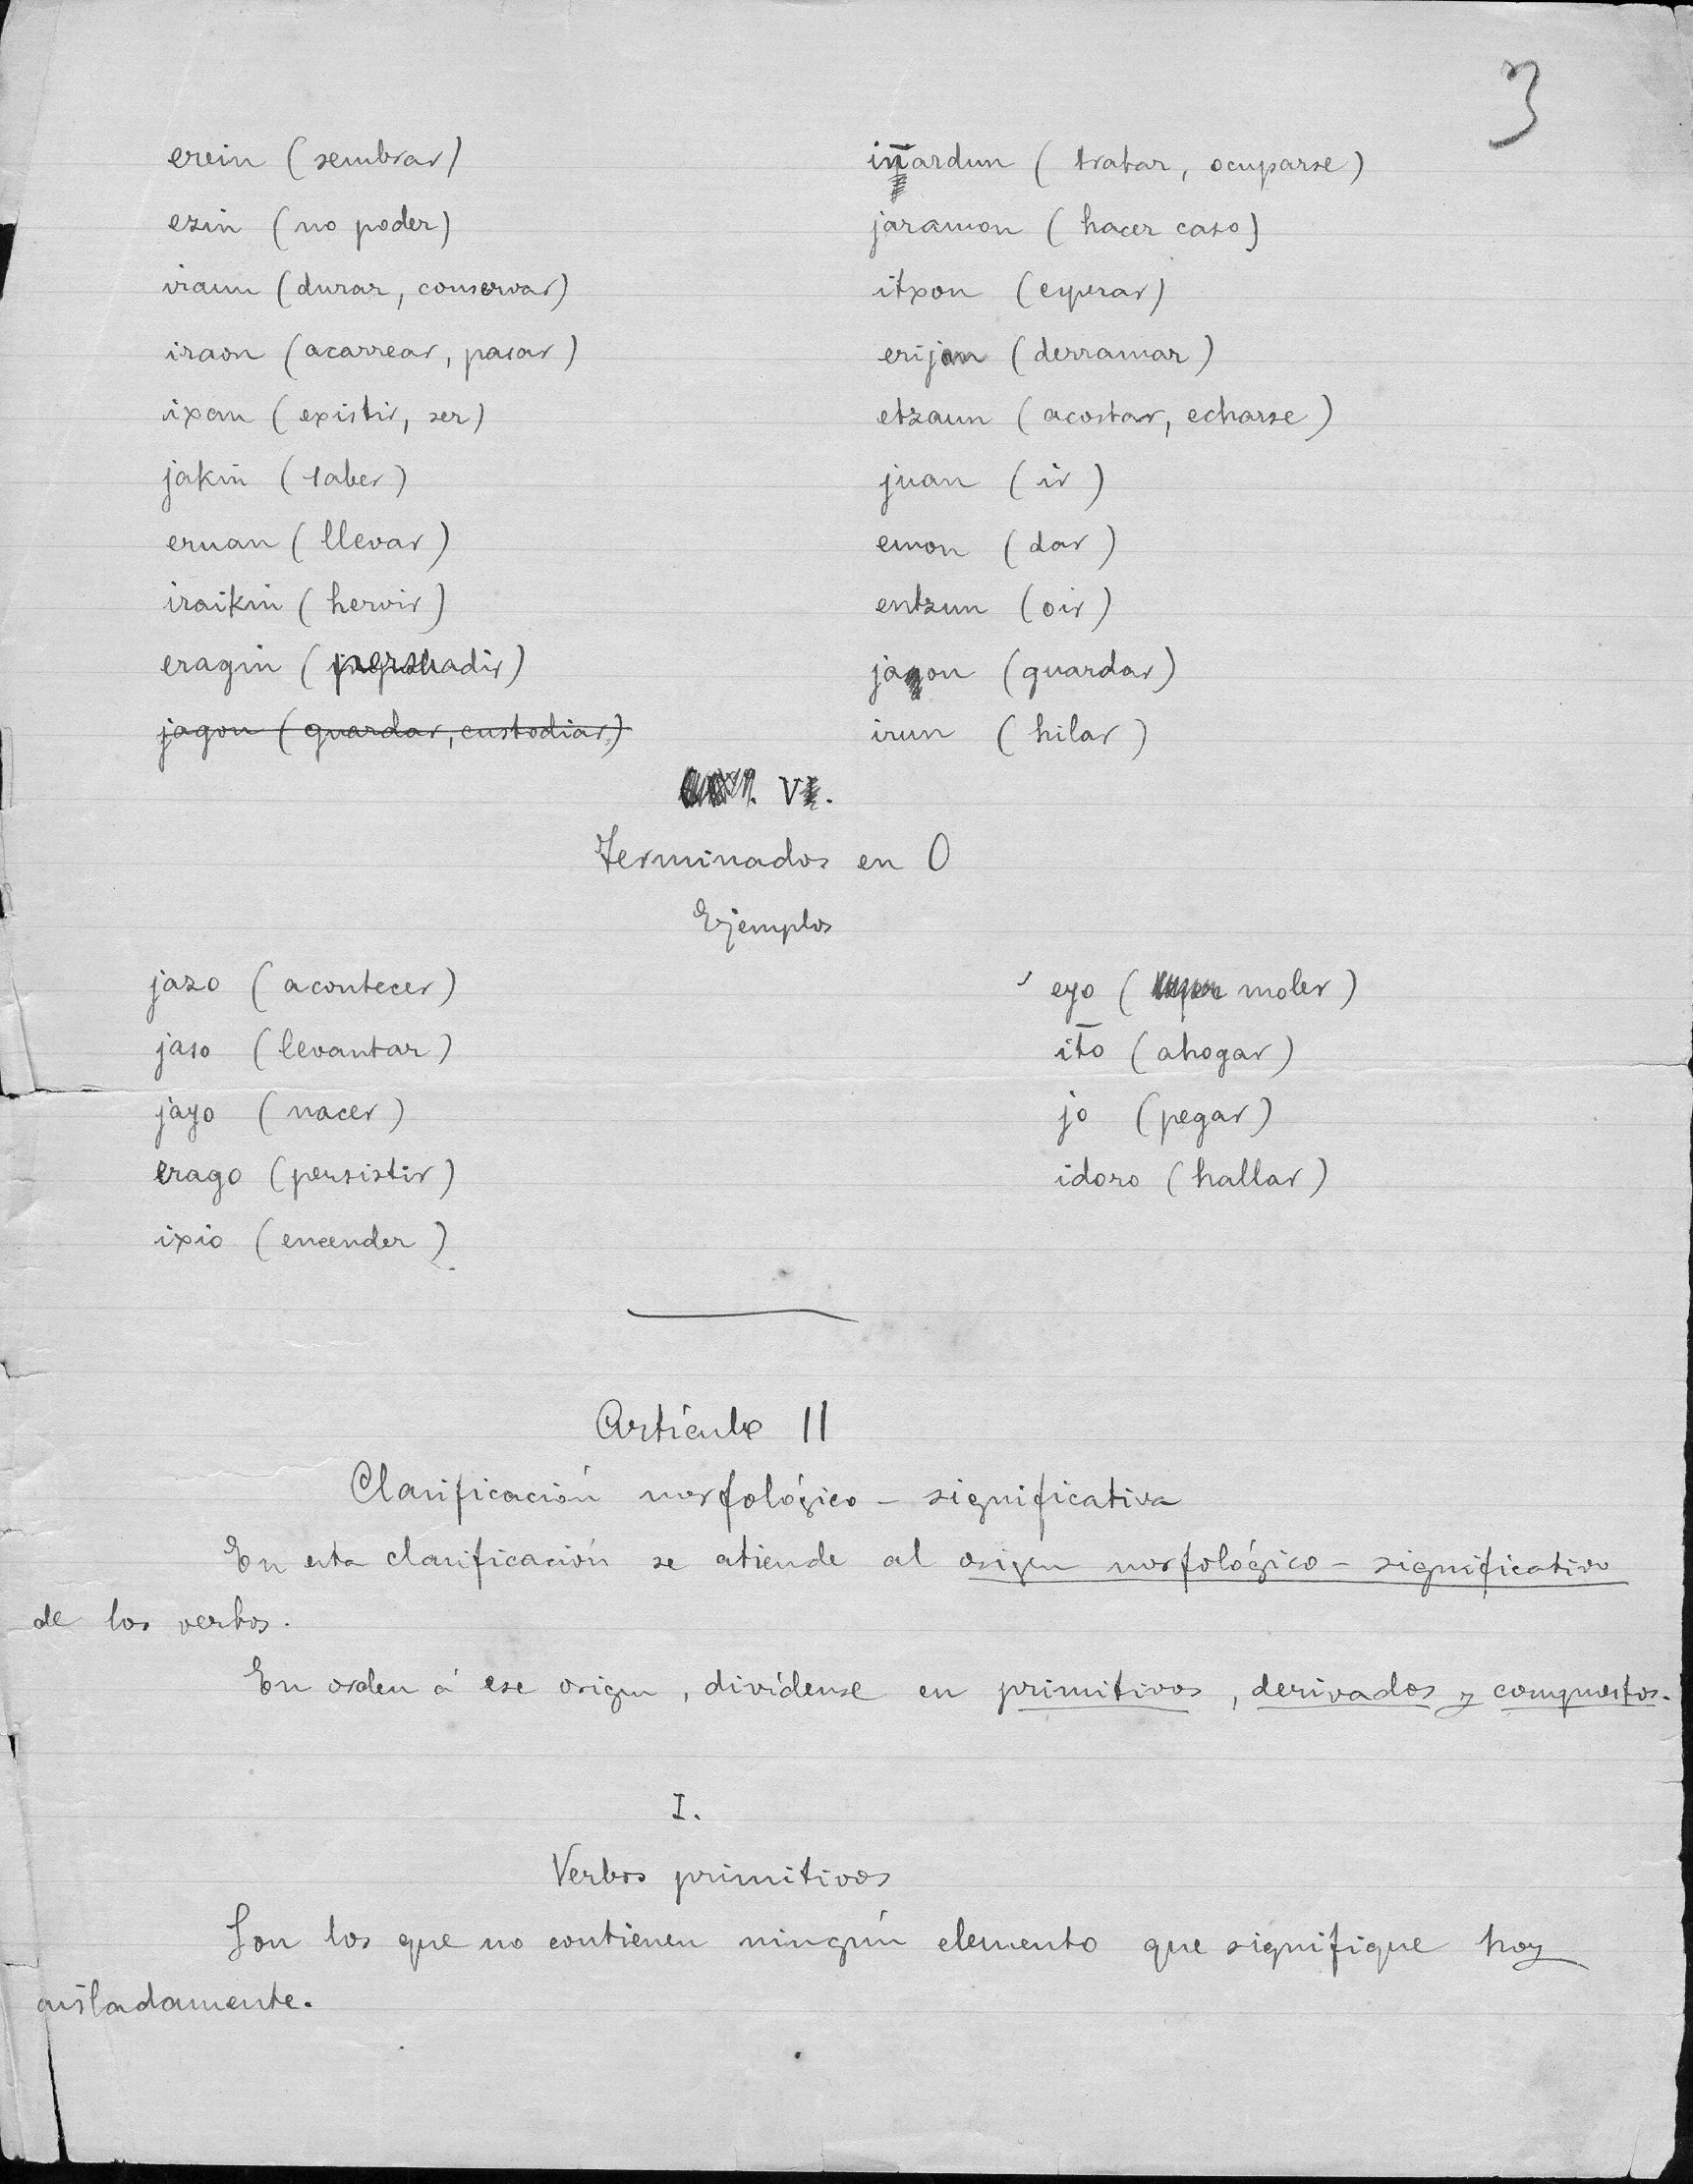 3
erein (sembrar)
iñardun (tratar, ocuparse)
ezin (no poder)
jaramon (hacer caso)
iraun (durar, conservar)
itxon (esperar)
iraon (acarrear, pasar)
erijon (derramar)
ixan (existir, ser)
etzaun (acostar, echarse)
jakin (saber)
juan (ir)
eruan (llevar)
emon (dar)
iraikin (hervir)
entzun (oir)
eragin (persuadir)
jagon (guardar)
jagon (guardar, custodiar)
irun (hilar)
V.
Terminados en O
Ejemplos
jazo (acontecer)
eyo (moler)
jaso (levantar)
ito (ahogar)
jayo (nacer)
jo (pegar)
erago (persistir)
idoro (hallar)
ixio (encender)
Artículo II
Clasificación morfológico - significativa
En esta clasificación se atiende al origen morfológico - significativo
de los verbos.
En orden á ese origen, divídense en primitivos, derivados y compuestos.
I.
Verbos primitivos
Son los que no contienen ningún elemento que signifique hoy
aisladamente.